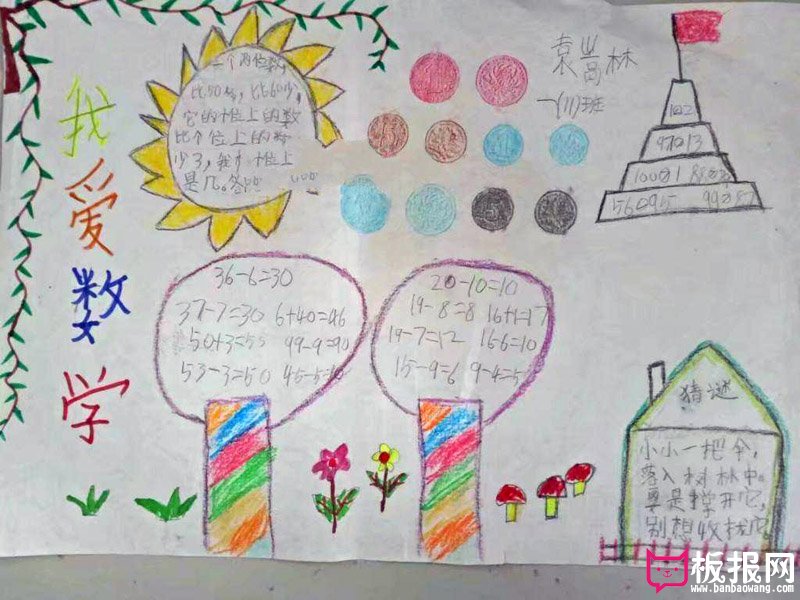 我爱数学
一个两位数,
比50大,比60小,
它的十位上的数
比个位上的数
少3,
是几。答
袁嵩林
一(11)班
36-6=30
37-7=30 6+40=46
50+3=53 99-9=90
53-3=50 45-5=
20-10=10
16+1=17
19-7=12 16-6=10
15-9=6 9-4=5
102
56095
猜谜
小小一把伞,
落入树林中。
要是撑开它,
别想收拢它
板报网
www.banbaowang.com